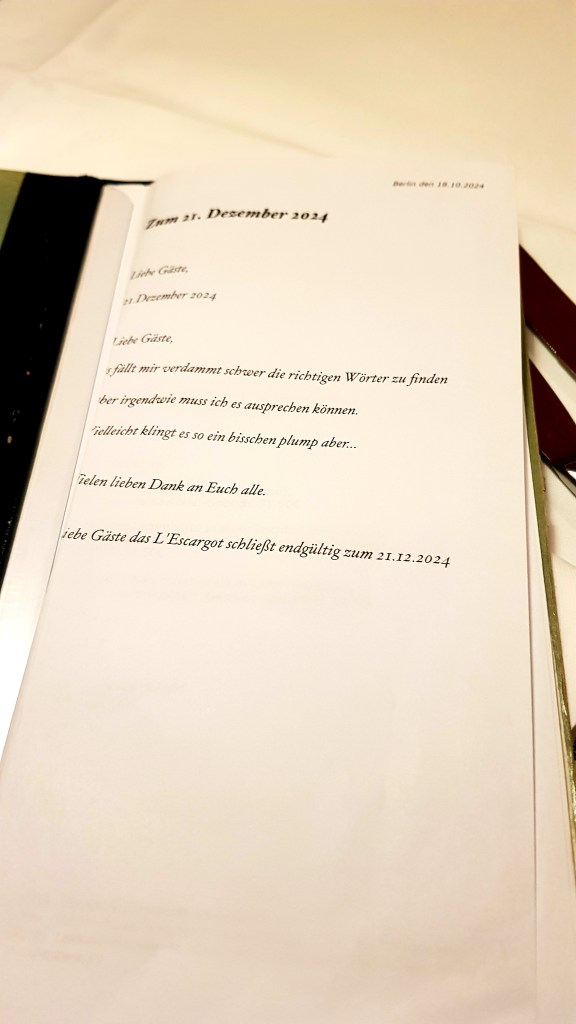 Berlin den 18.10.2024
Zum 21. Dezember 2024
Liebe Gäste,
21.Dezember 2024
Liebe Gäste,
s fällt mir verdammt schwer die richtigen Wörter zu finden
ber irgendwie muss ich es ausprechen können.
Vielleicht klingt es so ein bisschen plump aber...
Vielen lieben Dank an Euch alle.
iebe Gäste das L'Escargot schließt endgültig zum 21.12.2024